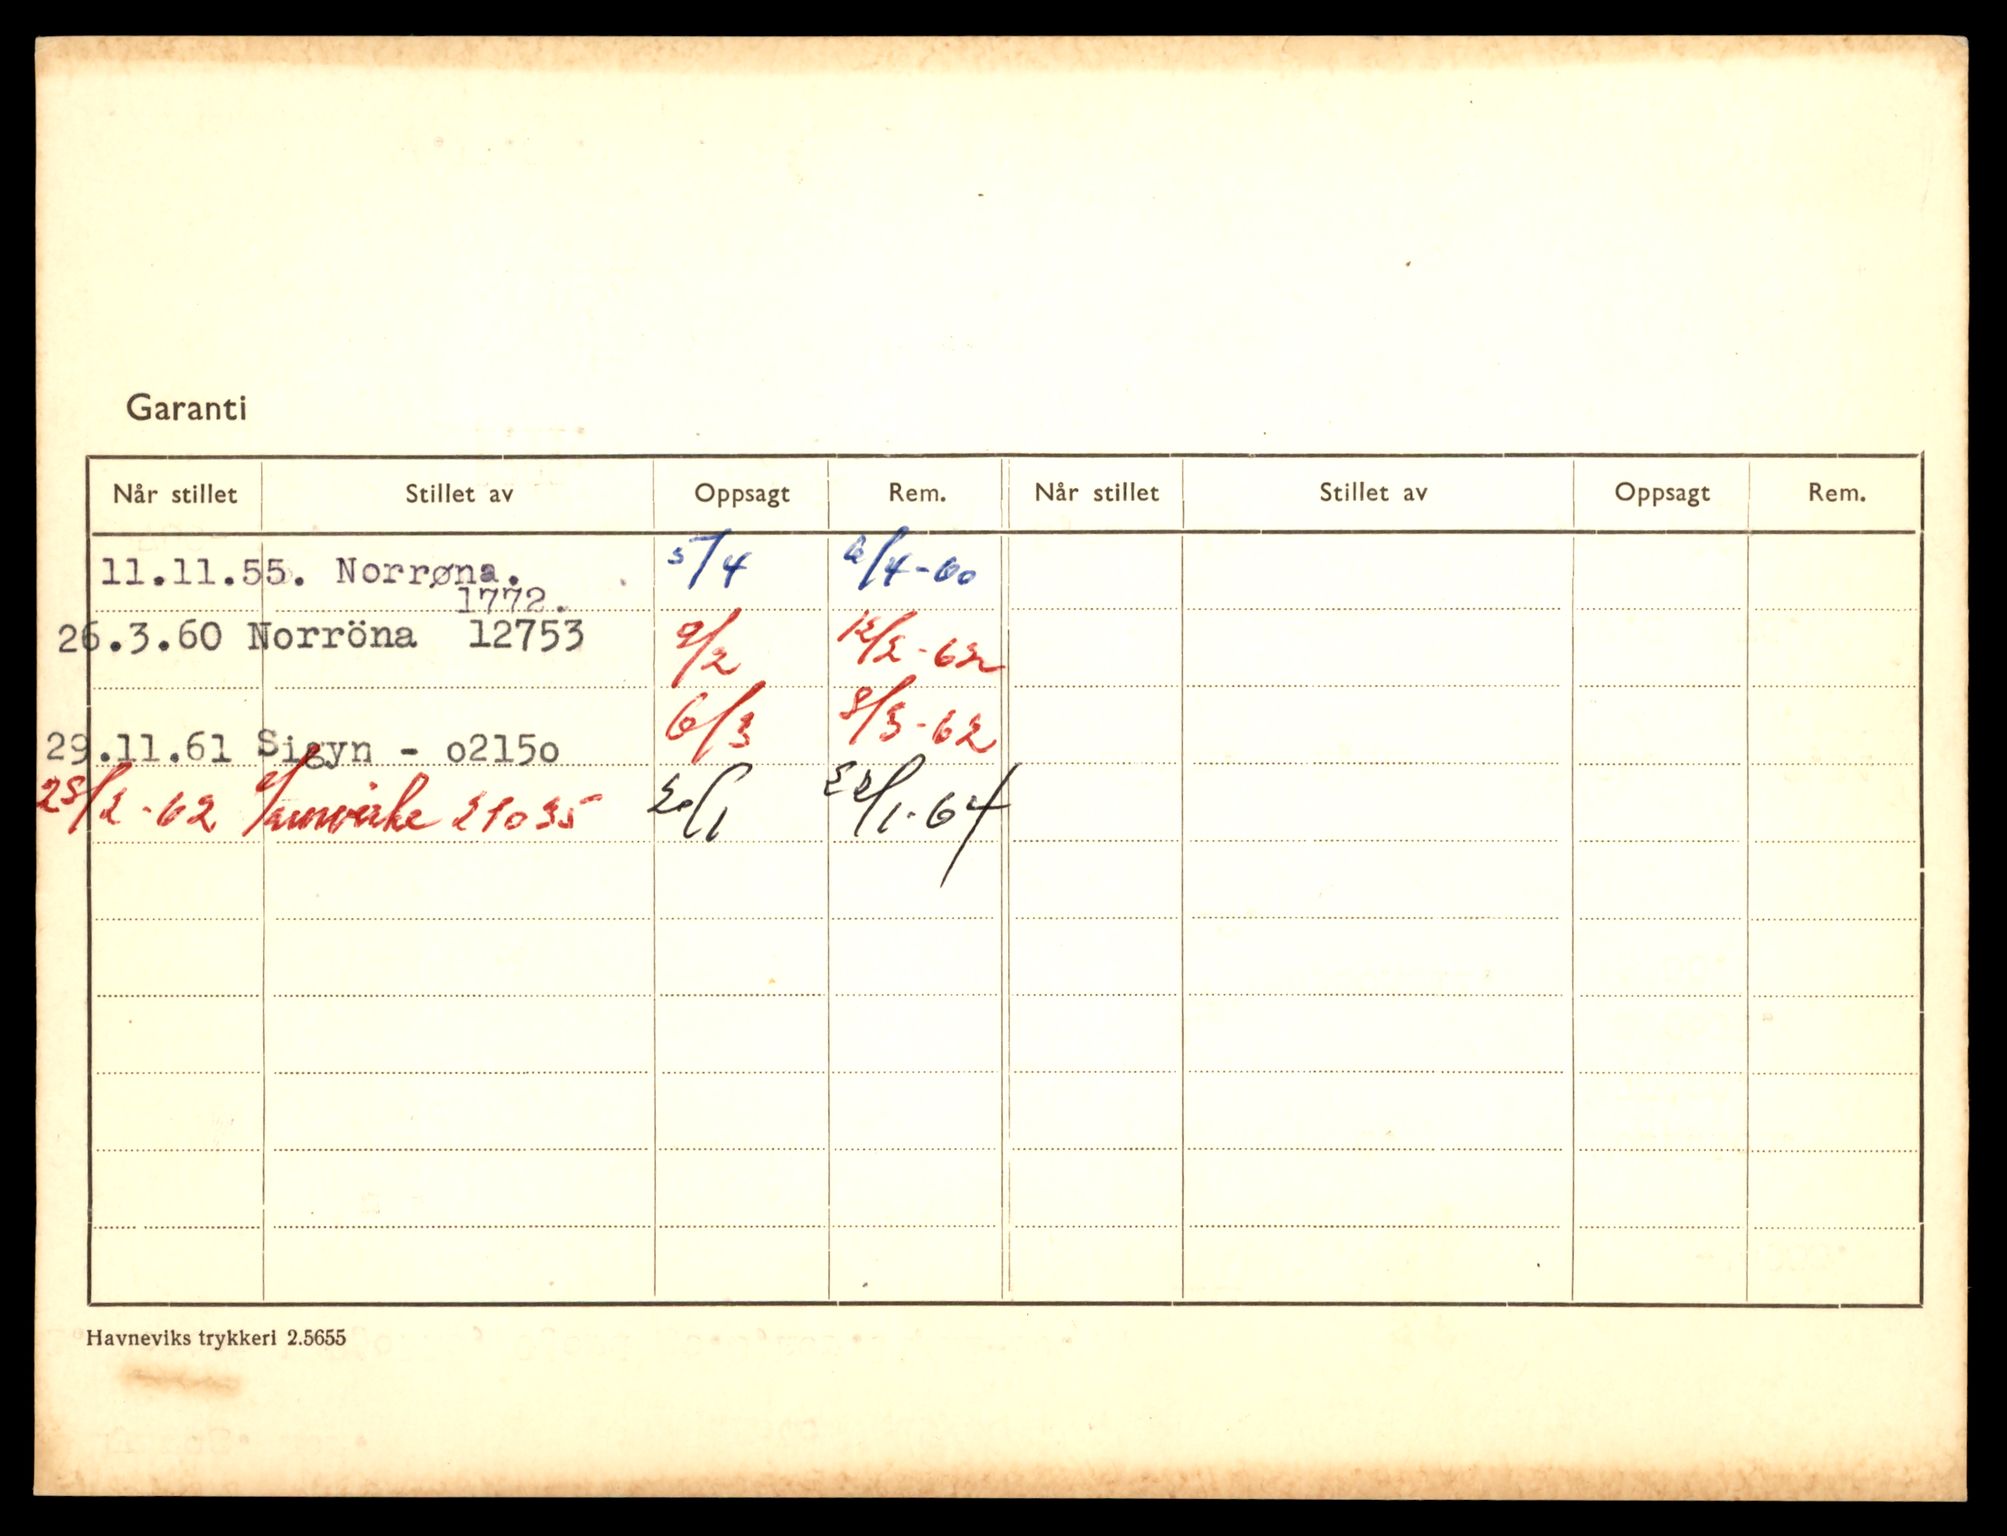 Garanti
Når stillet Stillet av Oppsagt Rem. Når stillet Stillet av Oppsagt Rem.
11.11.55. Norrøna. 5/4 6/4-60
1772.
26.3.60 Norröna 12753 9/2 12/2-62
29.11.61 Sigyn - o215o 6/3 8/3-62
28/2-62 Samvirke 21035 20/1 22/1-64
Havneviks trykkeri 2.5655